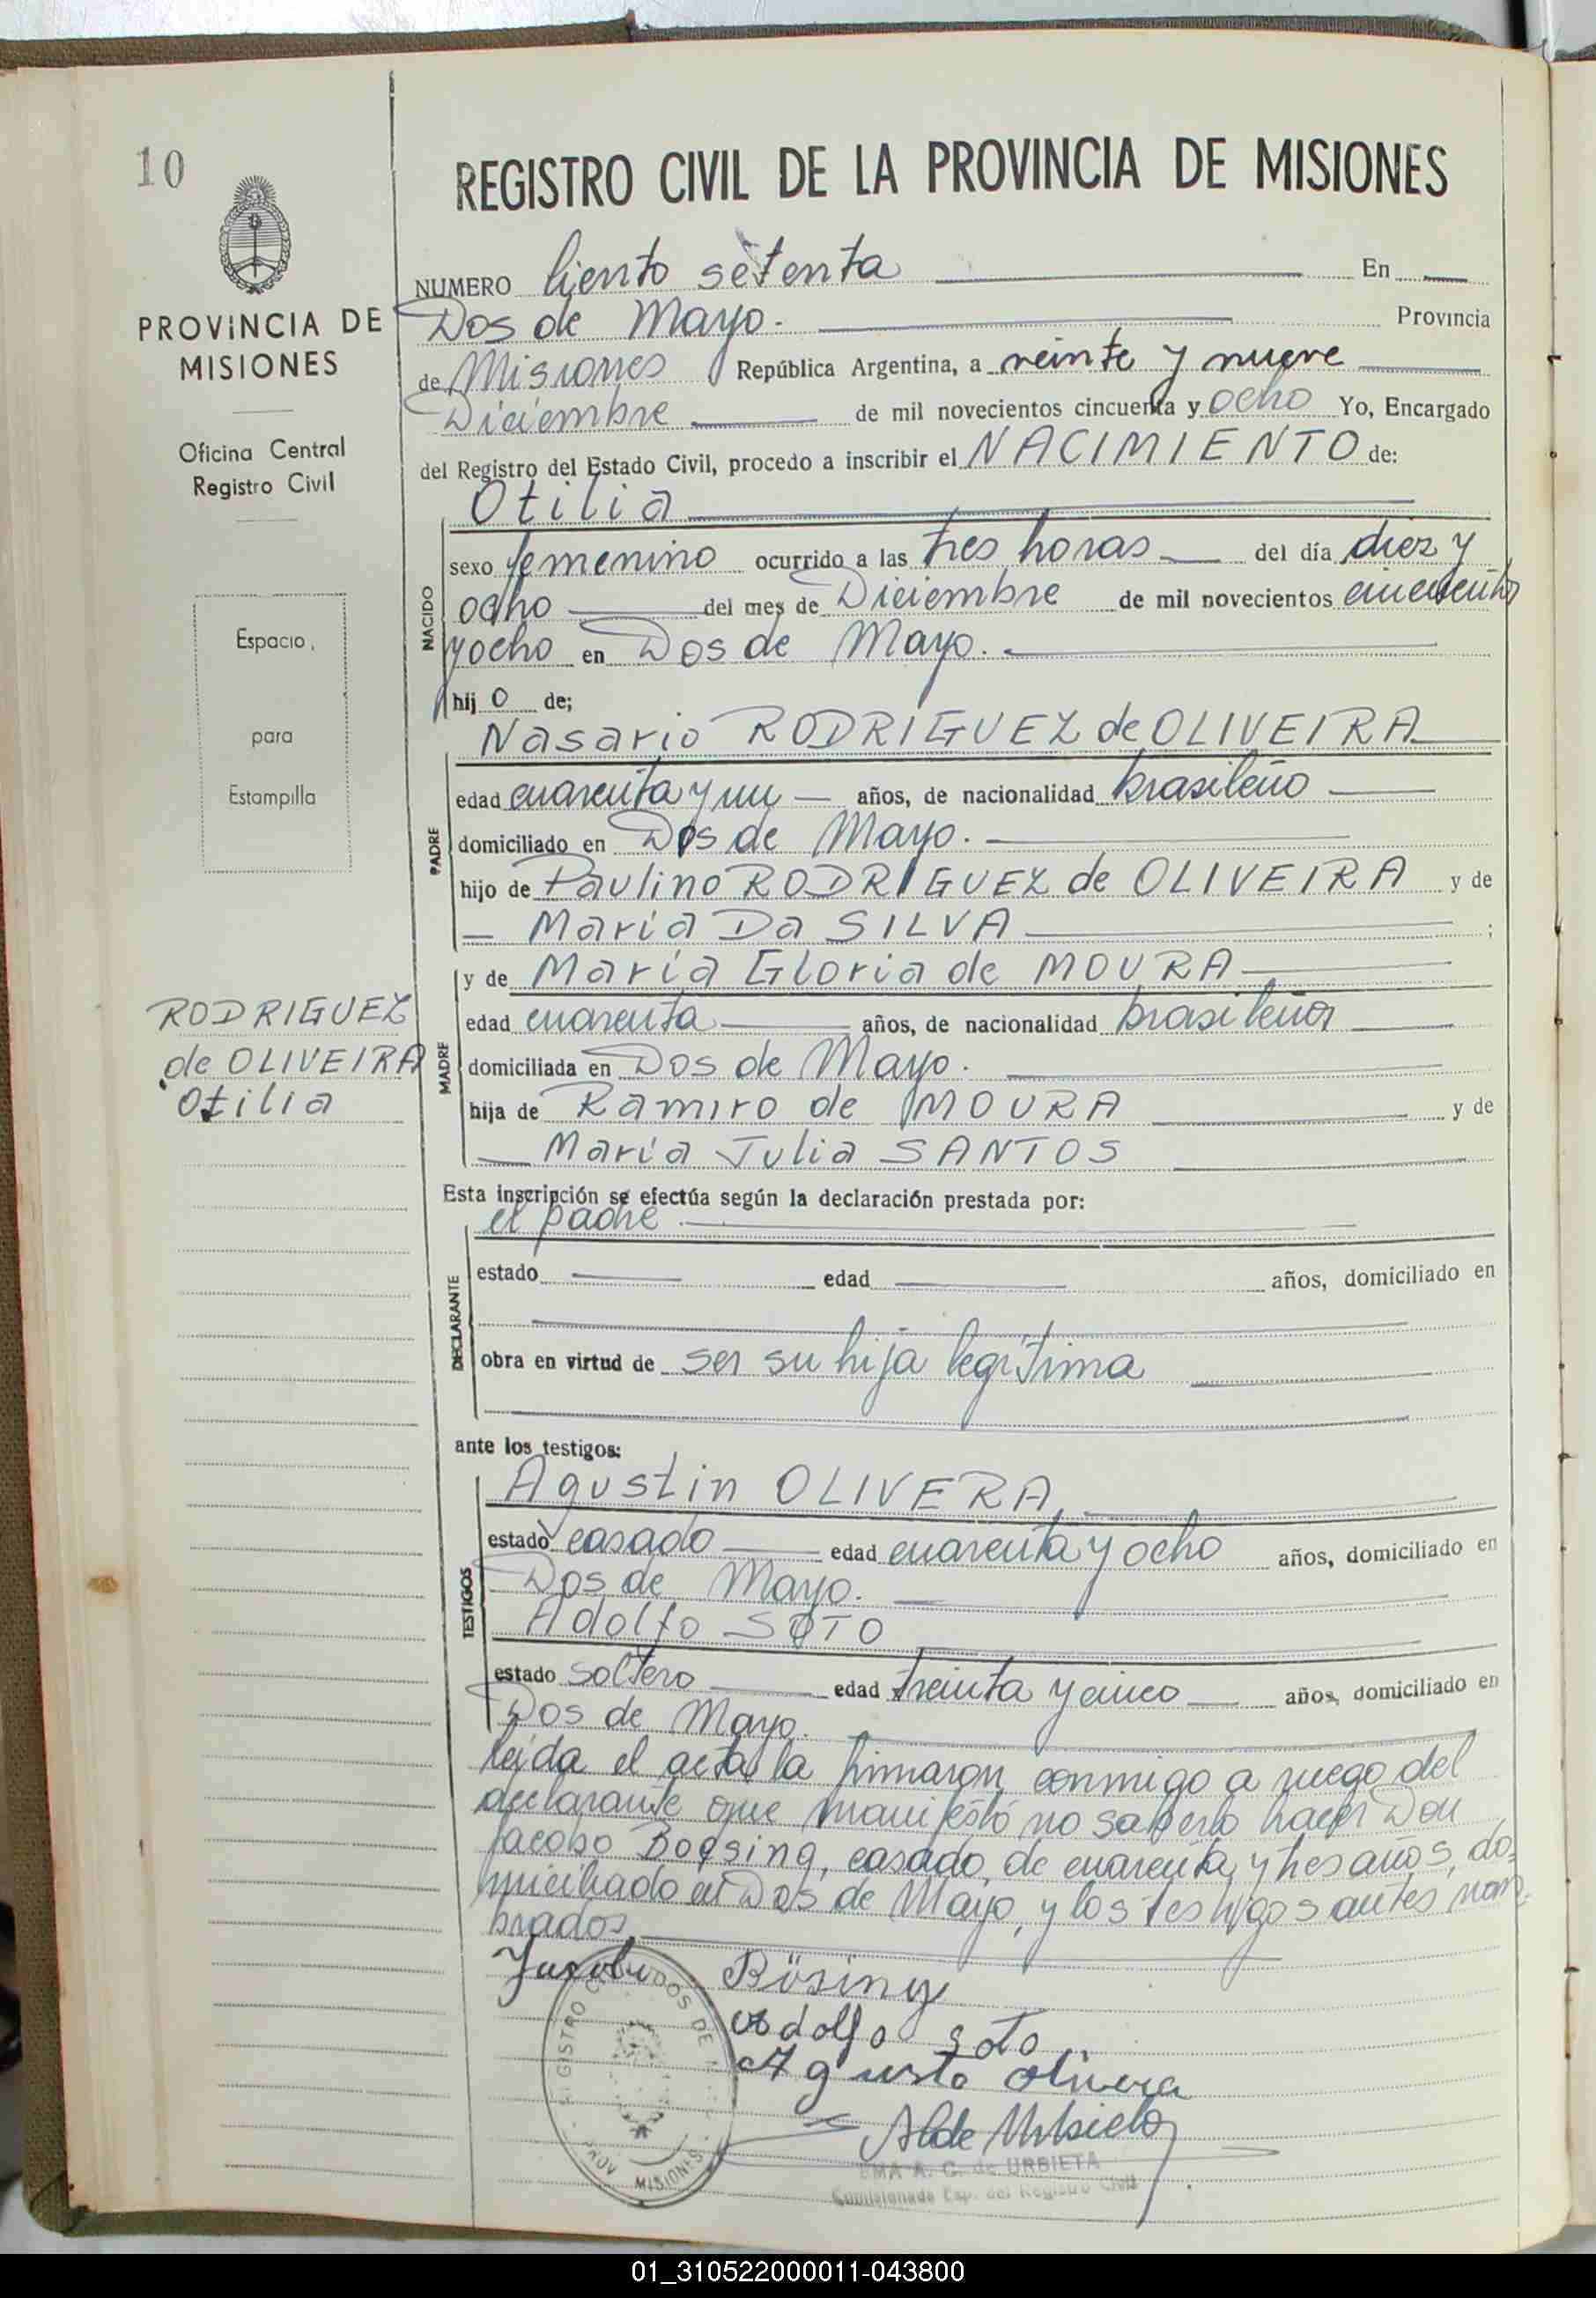 10
PROVINCIA DE
MISIONES
Oficina Central
Registro Civil
Espacio
para
Estampilla
RODRIGUEZ
de OLIVEIRA
Otilia
REGISTRO CIVIL DE LA PROVINCIA DE MISIONES
NUMERO Ciento setenta En
Dos de Mayo. Provincia
de Misiones República Argentina, a veinte y nueve
Diciembre de mil novecientos cincuenta y ocho Yo, Encargado
del Registro del Estado Civil, procedo a inscribir el NACIMIENTO de:
Otilia
NACIDO
sexo femenino ocurrido a las tres horas del día diez y
ocho del mes de Diciembre de mil novecientos cincuenta
y ocho en Dos de Mayo.
hij o de;
Nasario RODRIGUEZ de OLIVEIRA
PADRE
edad cuarenta y un años, de nacionalidad brasileño
domiciliado en Dos de Mayo.
hijo de Paulino RODRIGUEZ de OLIVEIRA y de
María Da SILVA ;
y de María Gloria de MOURA
MADRE
edad cuarenta años, de nacionalidad brasileña
domiciliada en Dos de Mayo.
hija de Ramiro de MOURA y de
María Julia SANTOS
Esta inscripción se efectúa según la declaración prestada por:
el padre
DECLARANTE
estado edad años, domiciliado en
obra en virtud de ser su hija legítima
ante los testigos:
Agustin OLIVERA
TESTIGOS
estado casado edad cuarenta y ocho años, domiciliado en
Dos de Mayo.
Adolfo SOTO
estado soltero edad treinta y cinco años, domiciliado en
Dos de Mayo.
leída el acta la firmaron conmigo a ruego del
declarante que manifestó no saberlo hacer Don
Jacobo Boesing, casado, de cuarenta y tres años, do-
miciliado en Dos de Mayo, y los testigos antes nom-
brados.
Jacobo Bösing
Adolfo soto
Agusto olivera
A de Urbieta
EMA A. C. de URBIETA
Comisionada Esp. del Registro Civil
MISIONES
01_310522000011-043800